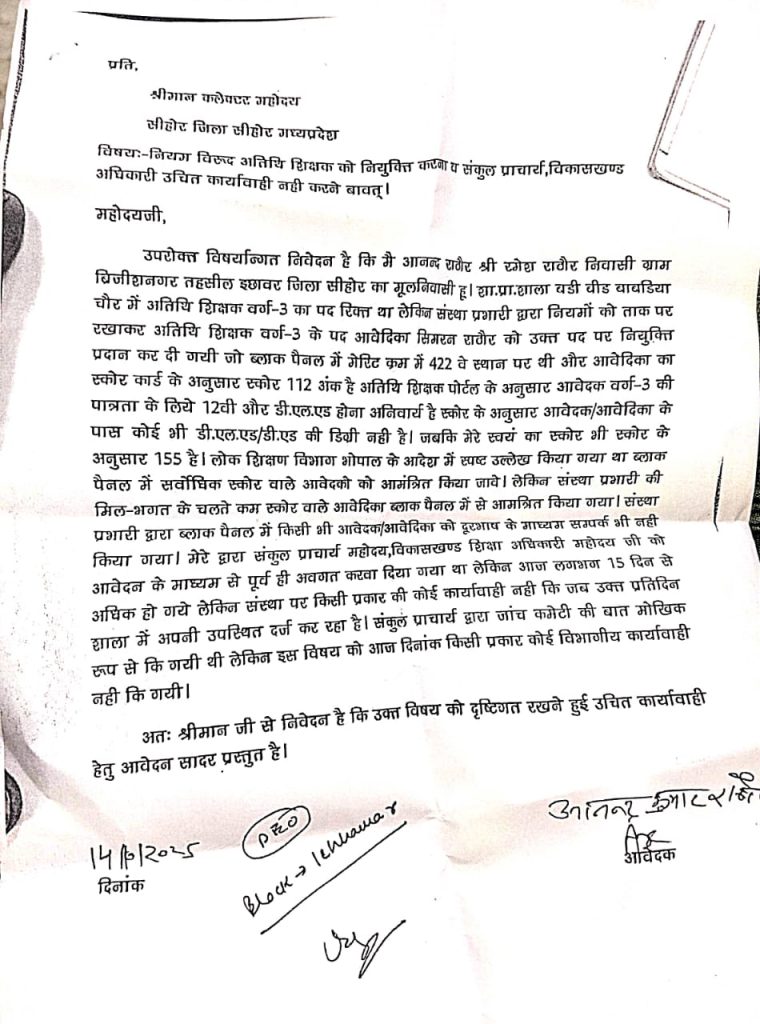 प्रति,
श्रीमान कलेक्टर महोदय
सीहोर जिला सीहोर मध्यप्रदेश
विषयः-नियम विरूद अतिथि शिक्षक को नियुक्ति करना व संकुल प्राचार्य,विकासखण्ड
अधिकारी उचित कार्यावाही नही करने बावत्।
महोदयजी,
उपरोक्त विषर्यान्गत निवेदन है कि मै आनन्द राठौर श्री रमेश राठौर निवासी ग्राम
ब्रिजीशनगर तहसील इछावर जिला सीहोर का मूलनिवासी हू। शा.प्रा.शाला बडी वीड बावडिया
चौर में अतिथि शिक्षक वर्ग-3 का पद रिक्त था लेकिन संस्था प्रभारी द्वारा नियमों को ताक पर
रखाकर अतिथि शिक्षक वर्ग-3 के पद आवेदिका सिमरन राठौर को उक्त पद पर नियुक्ति
प्रदान कर दी गयी जो ब्लाक पैनल में मेरिट क्रम में 422 वे स्थान पर थी और आवेदिका का
स्कोर कार्ड के अनुसार स्कोर 112 अंक है अतिथि शिक्षक पोर्टल के अनुसार आवेदक वर्ग-3 की
पात्रता के लिये 12वी और डी.एल.एड होना अनिवार्य है स्कोर के अनुसार आवेदक/आवेदिका के
पास कोई भी डी.एल.एड/डी.एड की डिग्री नही है। जबकि मेरे स्वयं का स्कोर भी स्कोर के
अनुसार 155 है। लोक शिक्षण विभाग भोपाल के आदेश में स्पष्ट उल्लेख किया गया था ब्लाक
पैनल में सर्वोधिक स्कोर वाले आवेदको को आमंत्रित किया जावे। लेकिन संस्था प्रभारी की
मिल-भगत के चलते कम स्कोर वाले आवेदिका ब्लाक पैनल में से आमत्रित किया गया। संस्था
प्रभारी द्वारा ब्लाक पैनल में किसी भी आवेदक/आवेदिका को दूरभाष के माध्यम सम्पर्क भी नही
किया गया। मेरे द्वारा संकुल प्राचार्य महोदय,विकासखण्ड शिक्षा अधिकारी महोदय जी को
आवेदन के माध्यम से पूर्व ही अवगत करवा दिया गया था लेकिन आज लगभग 15 दिन से
अधिक हो गये लेकिन संस्था पर किसी प्रकार की कोई कार्यावाही नही कि जब उक्त प्रतिदिन
शाला में अपनी उपस्थित दर्ज कर रहा है। संकुल प्राचार्य द्वारा जांच कमेटी की बात मोखिक
रूप से कि गयी थी लेकिन इस विषय को आज दिनांक किसी प्रकार कोई विभागीय कार्यावाही
नही कि गयी।
अतः श्रीमान जी से निवेदन है कि उक्त विषय को दृष्टिगत रखने हुई उचित कार्यावाही
हेतु आवेदन सादर प्रस्तुत है।
आनन्द कुमार राठौर
आवेदक
दिनांक
Block → Ichhawar